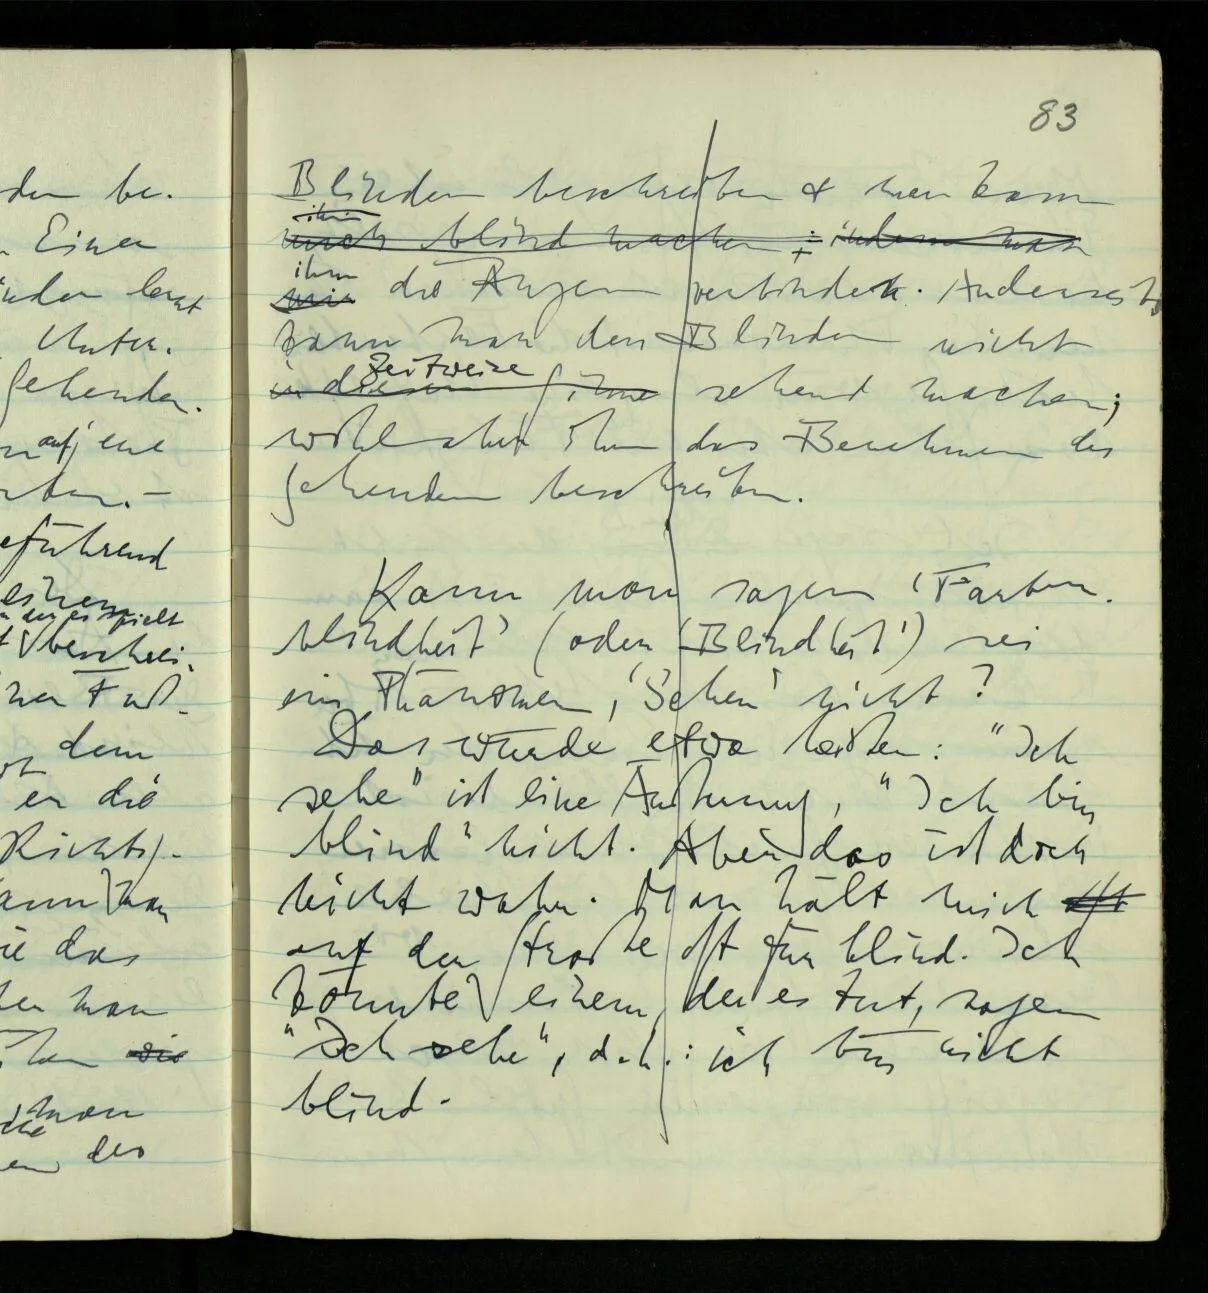 den be-
Einen
lernt
Unter-
Sehenden.
auf jene
-
führend
einem
spielt
beschrei-
Fuß-
dem
er die
Richtg.
kann man
wie das
man
die
man
des
83
Blinden beschreiben & man kann
ihn
mich blind machen; indem man
ihm
mir die Augen verbinden. Anderseits
kann man den Blinden nicht
zeitweise
in diesem Sinne sehend machen;
wohl aber ihm das Benehmen des
Sehenden beschreiben.
Kann man sagen ‘Farben-
blindheit’ (oder ‘Blindheit’) sei
ein Phänomen, ‘Sehen’ nicht?
Das würde etwa heißen: "Ich
sehe" ist eine Äußerung, "Ich bin
blind" nicht. Aber das ist doch
nicht wahr. Man hält mich oft
auf der Straße oft für blind. Ich
könnte einem, der es tut, sagen
"Ich sehe", d.h.: ich bin nicht
blind.